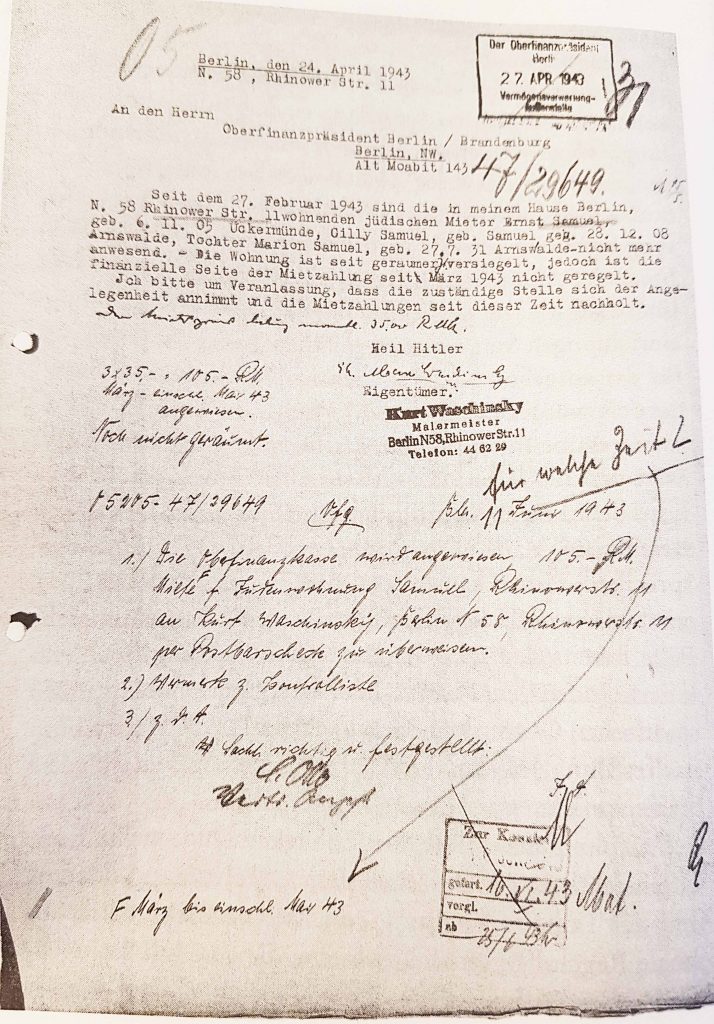 05
Berlin, den 24. April 1943
N. 58 , Rhinower Str. 11
Der Oberfinanzpräsident
Berlin
27. APR. 1943
Vermögensverwertung-
An den Herrn
Oberfinanzpräsident Berlin / Brandenburg
Berlin, NW.
Alt Moabit 143
47/29649.
Seit dem 27. Februar 1943 sind die in meinem Hause Berlin,
N. 58 Rhinower Str. 11wohnenden jüdischen Mieter Ernst Samuel,
geb. 6. 11. 05 Uckermünde, Cilly Samuel, geb. Samuel geb. 28. 12. 08
Arnswalde, Tochter Marion Samuel, geb. 27. 7. 31 Arnswalde-nicht mehr
anwesend. - Die Wohnung ist seit geraumer versiegelt, jedoch ist die
finanzielle Seite der Mietzahlung seit März 1943 nicht geregelt.
Ich bitte um Veranlassung, dass die zuständige Stelle sich der Ange-
legenheit annimmt und die Mietzahlungen seit dieser Zeit nachholt.
Der Mietspreis betrug monatl. 35,00 RM.
Heil Hitler
Eigentümer.
Kurt Waschinsky
Malermeister
Berlin N58, Rhinower Str. 11
Telefon: 44 62 29
3x35,- = 105.- RM.
März - einschl. Mai 43
angewiesen.
Noch nicht geräumt.
für welche Zeit?
05205-47/29649
Vfg
Bln. 11 Juni 1943
1.) Die Oberfinanzkasse wird angewiesen, 105.- RM.
Miete f. Judenwohnung Samuel, Rhinowerstr. 11
an Kurt Waschinsky, Berlin N 58, Rhinowerstr. 11
per Postbarscheck zu überweisen.
2.) Vermerk z. Kontrolliste
3.) z. d. A.
Sachl. richtig u. festgestellt.
Zur Kanzlei
gefert. 16. VI. 43
vergl.
ab
F März bis einschl. Mai 43